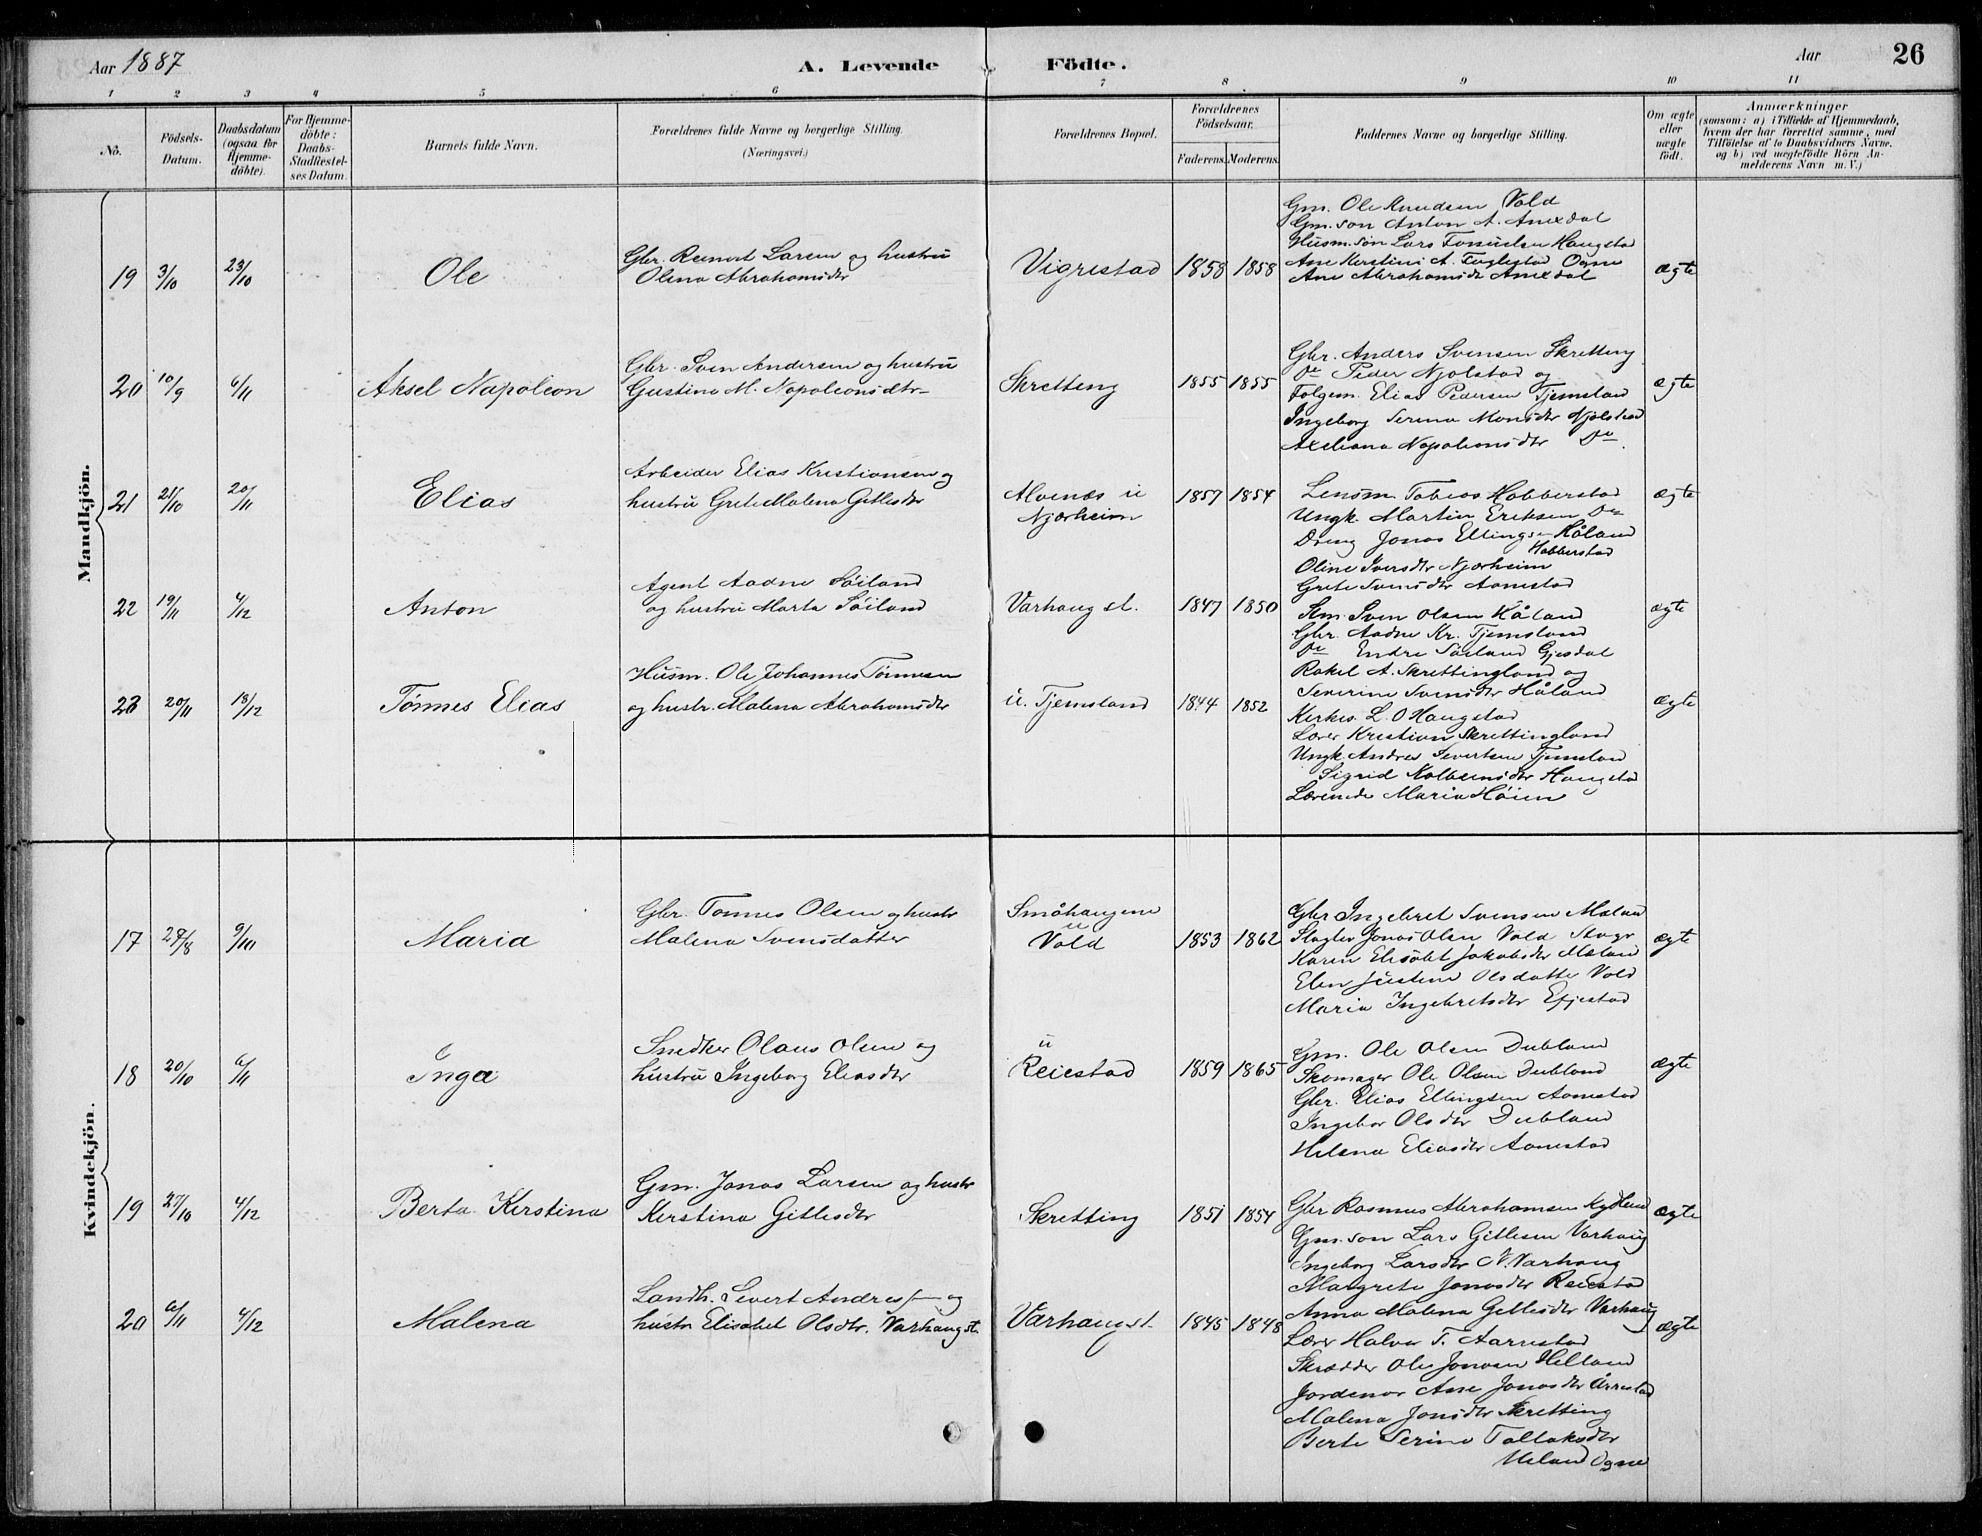 Aar 1887
A. Levende
Födte.
Aar
26
1 2 3 4 5 6 7 8 9 10 11
No.
Födsels-
Datum.
Daabsdatum
(ogsaa for
Hjemme-
döbte).
For Hjemme-
döbte:
Daabs-
Stadfæstel-
ses Datum.
Barnets fulde Navn.
Forældrenes fulde Navne og borgerlige Stilling.
(Næringsvei.)
Forældrenes Bopæl.
Forældrenes
Födselsaar.
Faderens. Moderens.
Faddernes Navne og borgerlige Stilling.
Om ægte
eller
uægte
födt.
Anmærkninger
(saasom: a) i Tilfælde af Hjemmedaab,
hvem der har forrettet samme, med
Tilföielse af to Daabsvidners Navne,
og b) ved uægtefödte Börn An-
melderens Navn m.V.)
Mandkjön.
19 3/10 23/10
Ole
Gbr. Reinert Larsen og hustru
Olena Abrahamsdtr
Vigrestad
1858 1858
Gm. Ole Knudsen Vold
Gm. søn Anton A. Anixdal
Husm. søn Lars Tonnelsen Haugstad
Ane Kerstine A. Fuglestad Ogne
Ane Abrahamsdt Anixdal
ægte
20 10/9 6/11
Aksel Napoleon
Gbr. Sven Andersen og hustru
Gustina M. Napoleonsdtr
Skretting
1855 1855
Gbr. Anders Svensen Skretting
Do Peder Njolstad og
Folgem. Elias Pedersen Tjemsland
Ingeborg Serina Monsdtr Njolstad
Axeliana Napoleonsdtr Do.
ægte
21 21/10 20/11
Elias
Arbeider Elias Kristiansen og
hustru Grete Malena Gitlesdtr
Alvenæs u
Njærheim
1857 1854
Lensm. Tobias Habberstad
Ungk. Martin Eriksen Do
Dreng Jonas Ellings. Håland
Habberstad
Oline Iversdtr Njærheim
Grete Svensdtr Aanestad
ægte
22 19/11 4/12
Anton
Agent Aadne Søiland
og hustru Marta Søiland
Varhaug st.
1847 1850
Sven Olsen Håland
Gbr. Aadne Kr. Tjemsland
Do Endre Søiland Gjesdal
Rakel A. Skrettingland og
Severine Svensdtr Håland
ægte
23 20/11 18/12
Tönnes Elias
Husm. Ole Johannes Tönnesen
og hustr. Malena Abrahamsdtr
u. Tjemsland
1844 1852
Kirkes. L. O Haugstad
Lærer Kristian Skrettingland
Ungk. Andreas Severtsen Tjemsland
Sigrid Kolbeinsdtr Haugstad
Lærerinde Maria Høien
ægte
Kvindekjön.
17 27/8 9/10
Maria
Gbr. Tonnes Olsen og hustr
Malena Svensdatter
Småhaugene
u
Vold
1853 1862
Gbr Ingebret Svensen Mæland
Slagter Jonas Olsen Vold Stvgr
Karen Elisabet Jakobsdtr Mæland
Elen Justine Olsdatter Vold
Maria Ingebretsdtr Efjestad
ægte
18 20/10 6/11
Inga
Snedker Olaus Olsen og
hustru Ingeborg Eliasdtr
u
Reiestad
1859 1865
Gm. Ole Olsen Dubland
Skomager Ole Olsen Dubland
Gbr. Elias Ellingsen Aanestad
Ingebor Olsdtr Dubland
Helena Eliasdtr Aanestad
ægte
19 27/10 4/12
Berta Kerstina
Gm. Jonas Larsen og hustr
Kerstina Gitlesdtr
Skretting
1851 1854
Gbr Rasmus Abrahamsen
Gm. son Lars Gitlesen Varhaug
Ingeborg Larsdtr N. Varhaug
Margrete Jonasdtr Reiestad
Anna Malena Gitlesdtr Varhaug
ægte
20 6/11 4/12
Malena
Landh. Severt Andres og
hustr Elisabet Olsdtr. Varhaug st.
Varhaug st.
1845 1848
Lærer Halvor T. Aarrestad
Skrædder Ole Jonasen Helland
Jordemor Ane Jonasdtr Årrestad
Malena Jonsdtr Skretting
Berte Serine Tollaksdtr
Heland Ogne
ægte